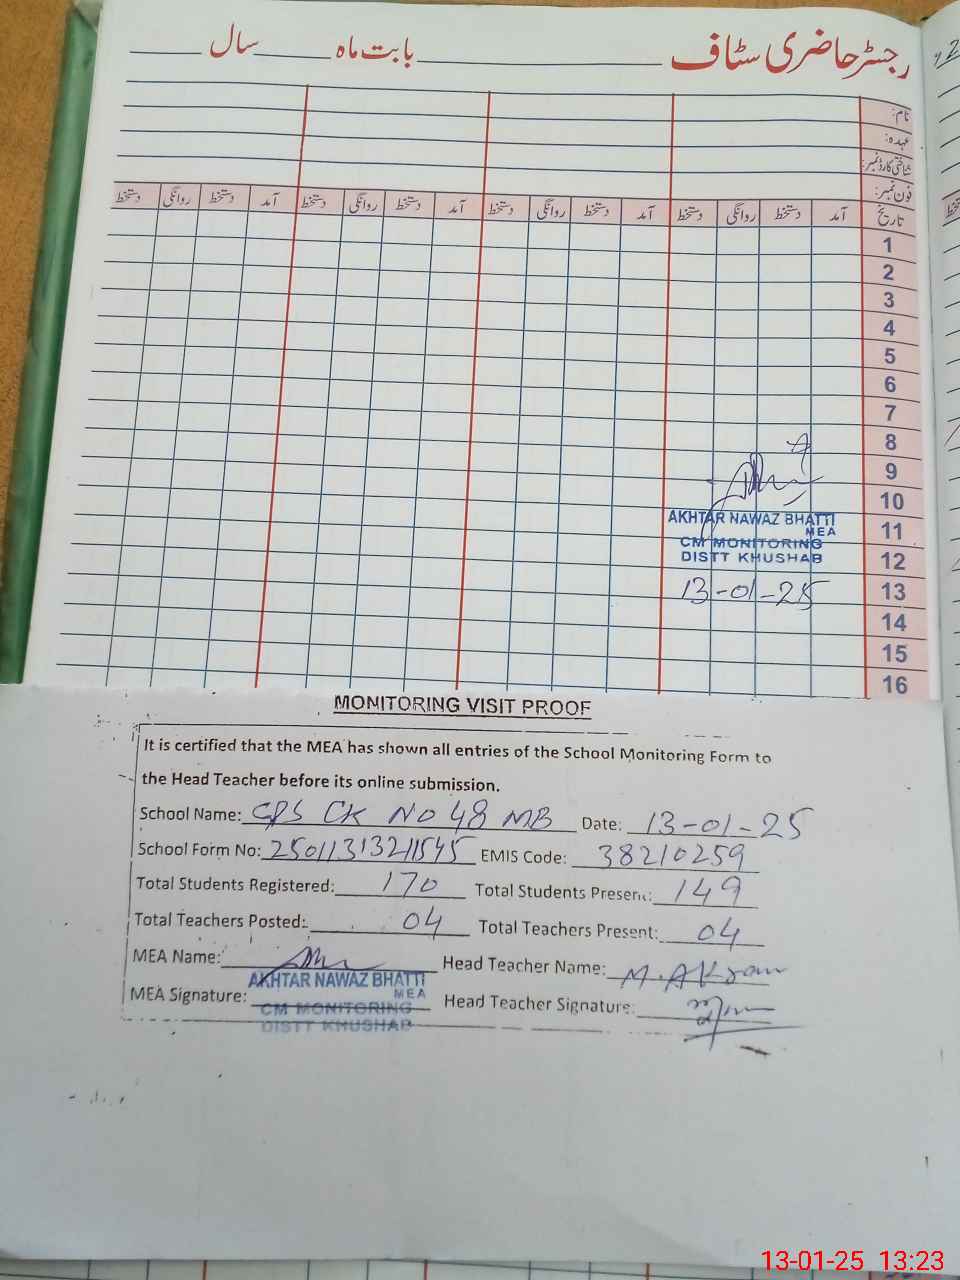 رجسٹر حاضری سٹاف ________ بابت ماہ ______ سال ______
نام:
عہدہ:
شناختی کارڈ نمبر:
فون نمبر:
تاریخ آمد دستخط روانگی دستخط آمد دستخط روانگی دستخط آمد دستخط روانگی دستخط آمد دستخط روانگی دستخط
1
2
3
4
5
6
7
8
9
10
11
12
13
14
15
16
AKHTAR NAWAZ BHATTI
MEA
CM MONITORING
DISTT KHUSHAB
13-01-25
MONITORING VISIT PROOF
It is certified that the MEA has shown all entries of the School Monitoring Form to
the Head Teacher before its online submission.
School Name: GPS CK NO 48 MB Date: 13-01-25
School Form No: EMIS Code: 38210259
Total Students Registered: 170 Total Students Present: 149
Total Teachers Posted: 04 Total Teachers Present: 04
MEA Name: Head Teacher Name: M. Akram
AKHTAR NAWAZ BHATTI
MEA
MEA Signature: Head Teacher Signature:
CM MONITORING
DISTT KHUSHAB
13-01-25 13:23